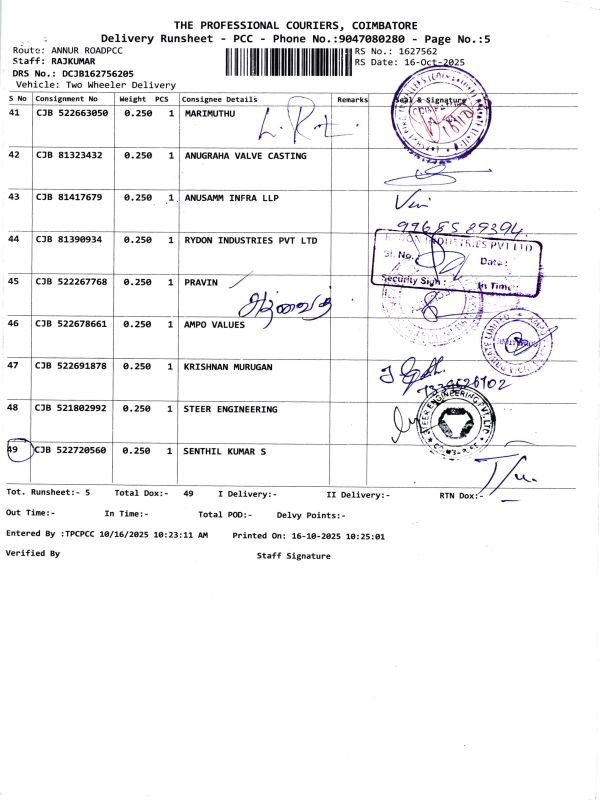 THE PROFESSIONAL COURIERS, COIMBATORE
Delivery Runsheet - PCC - Phone No.:9047080280 - Page No.:5
Route: ANNUR ROADPCC RS No.: 1627562
Staff: RAJKUMAR RS Date: 16-Oct-2025
DRS No.: DCJB162756205
Vehicle: Two Wheeler Delivery
S No Consignment No Weight PCS Consignee Details Remarks Seal & Signature
41 CJB 522663050 0.250 1 MARIMUTHU
42 CJB 81323432 0.250 1 ANUGRAHA VALVE CASTING
43 CJB 81417679 0.250 1 ANUSAMM INFRA LLP
99685 89394
44 CJB 81390934 0.250 1 RYDON INDUSTRIES PVT LTD
INDUSTRIES PVT LTD
Sl. No. Date:
Security Sign: In Time:
45 CJB 522267768 0.250 1 PRAVIN
46 CJB 522678661 0.250 1 AMPO VALUES
47 CJB 522691878 0.250 1 KRISHNAN MURUGAN
48 CJB 521802992 0.250 1 STEER ENGINEERING
STEER ENGINEERING PVT. LTD.
49 CJB 522720560 0.250 1 SENTHIL KUMAR S
Tot. Runsheet:- 5 Total Dox:- 49 I Delivery:- II Delivery:- RTN Dox:-
Out Time:- In Time:- Total POD:- Delvy Points:-
Entered By :TPCPCC 10/16/2025 10:23:11 AM Printed On: 16-10-2025 10:25:01
Verified By Staff Signature